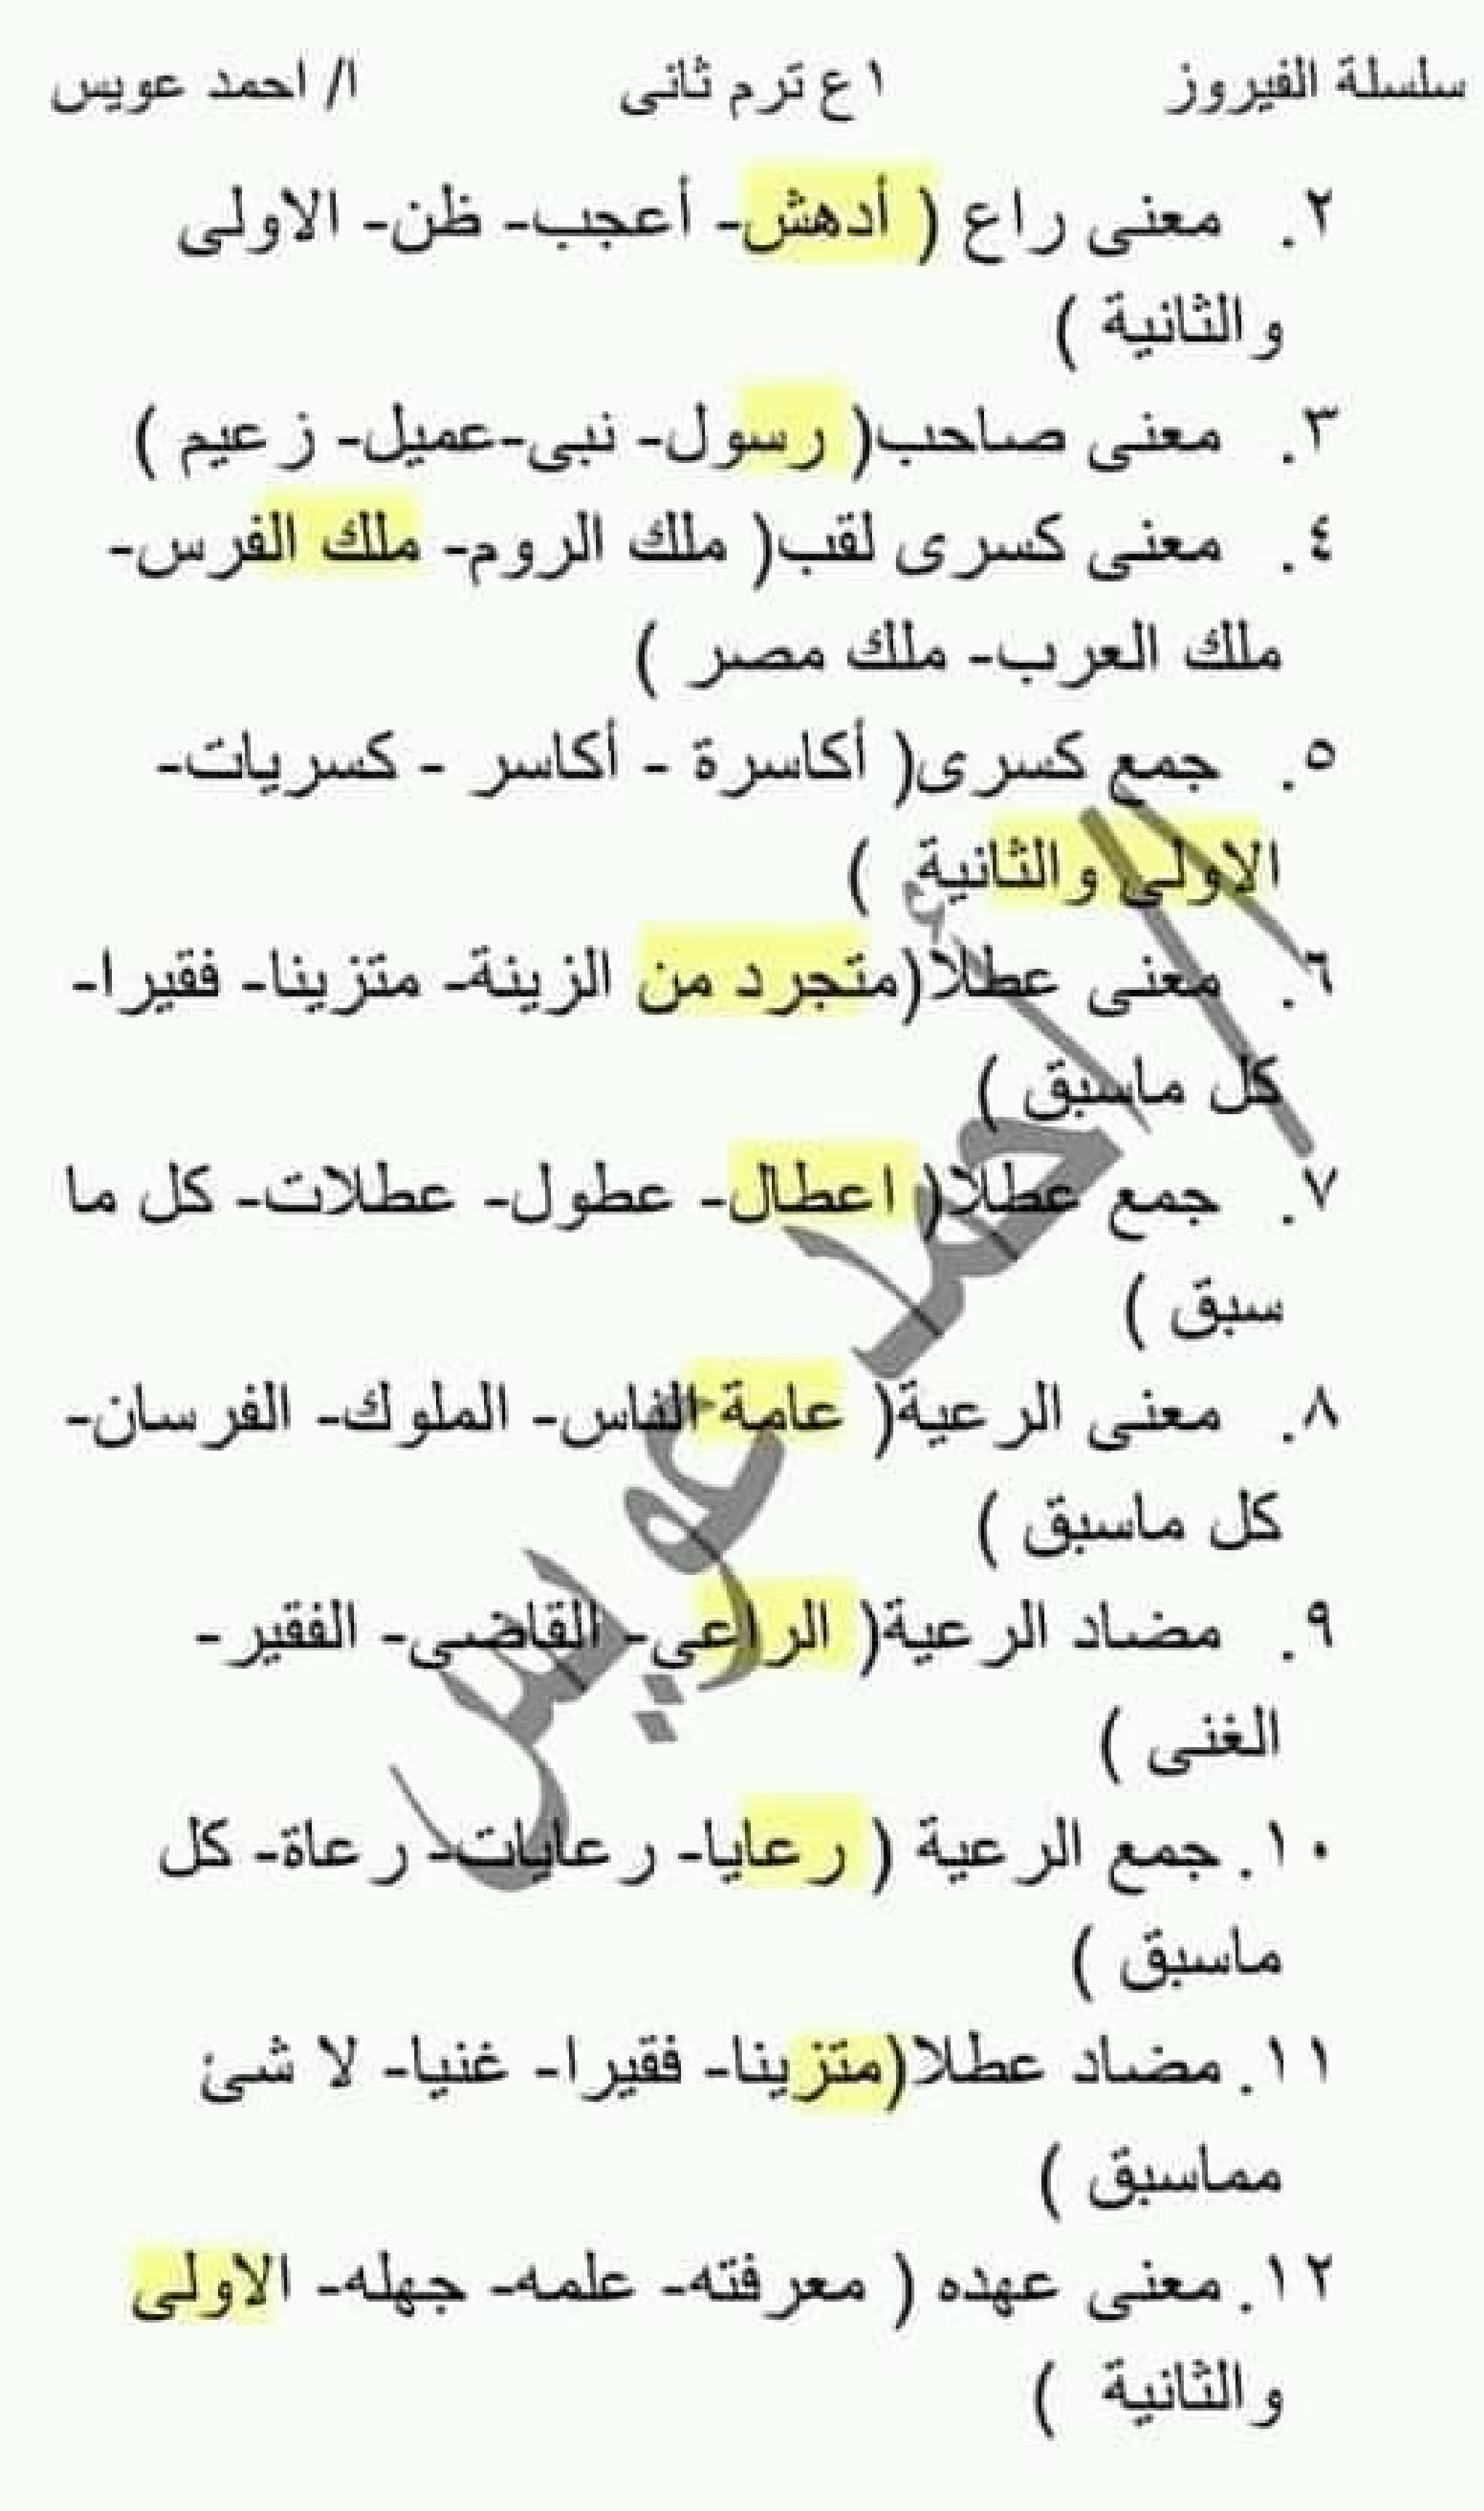 سلسلة الفيروز ١ع ترم ثانى ا/ احمد عويس
٢. معنى راع ( أدهش- أعجب- ظن- الاولى
والثانية )
٣. معنى صاحب( رسول- نبى-عميل- زعيم )
٤. معنى كسرى لقب( ملك الروم- ملك الفرس-
ملك العرب- ملك مصر )
٥. جمع كسرى( أكاسرة - أكاسر - كسريات-
الاولى والثانية )
٦. معنى عطلا(متجرد من الزينة- متزينا- فقيرا-
كل ماسبق )
٧. جمع عطلا( اعطال- عطول- عطلات- كل ما
سبق )
٨. معنى الرعية( عامة الناس- الملوك- الفرسان-
كل ماسبق )
٩. مضاد الرعية( الراعى- القاضى- الفقير-
الغنى )
١٠. جمع الرعية ( رعايا- رعايات- رعاة- كل
ماسبق )
١١. مضاد عطلا(متزينا- فقيرا- غنيا- لا شئ
مماسبق )
١٢. معنى عهده ( معرفته- علمه- جهله- الاولى
والثانية )
أ/ أحمد عويس